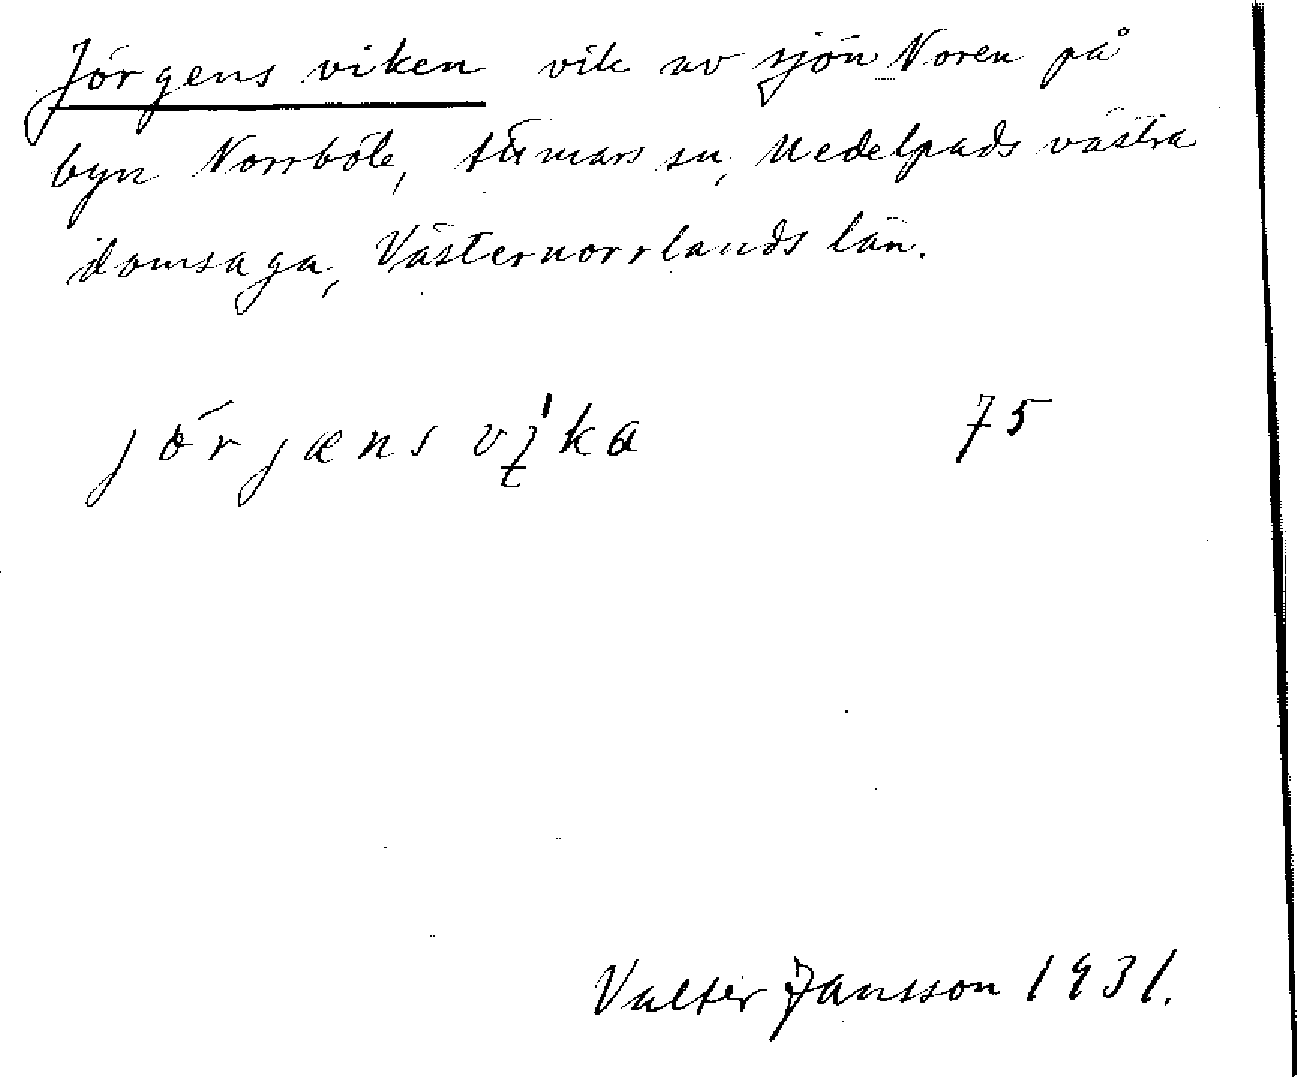 Jörgensviken vik av sjön Noren på
byn Norrböle, Stöde sn, Medelpads västra
domsaga, Västernorrlands län.
jör jæns vi̱ka 75
Valter Jansson 1931.